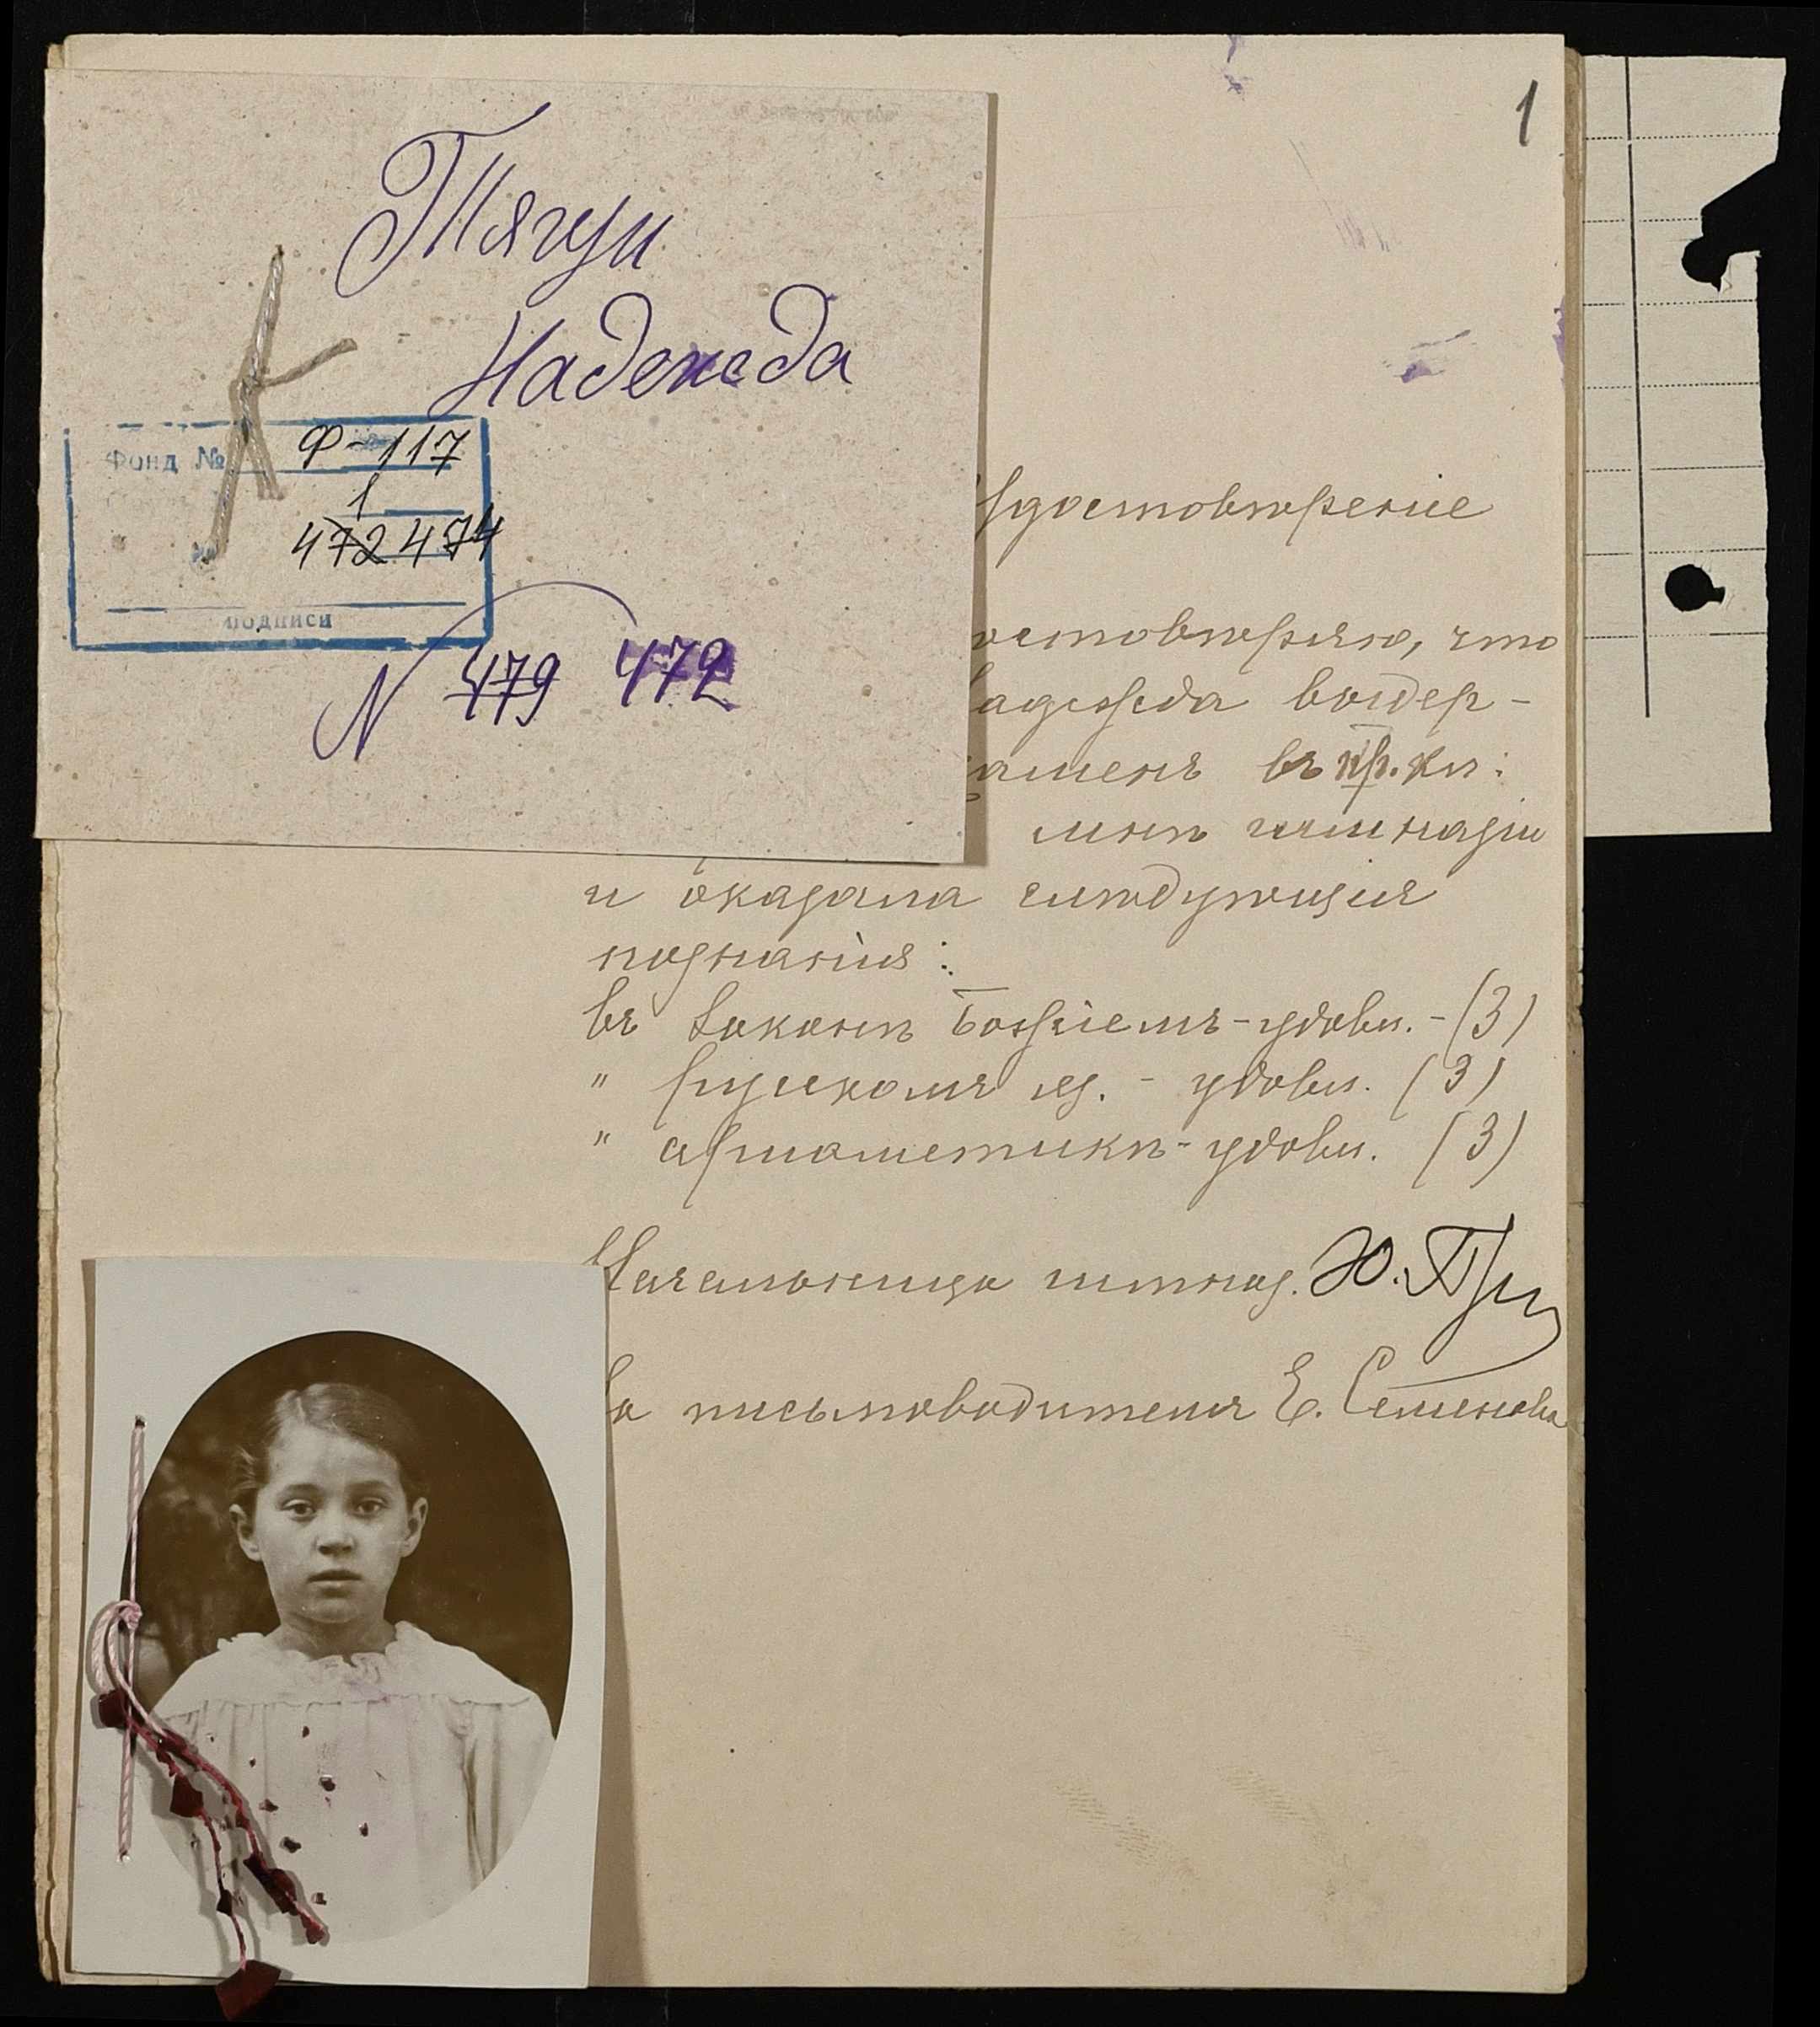 1
Тягун
Надежда
Фонд № Ф-117
1
472 474
подписи
N 479 472
Удостовѣреніе
остовѣряю, что
адежда выдер-
аменъ въ пр. кл:
гимназіи
и оказала слѣдующія
познанія:
въ Законѣ Божіемъ - удовл. - (3)
" русскомъ яз. - удовл. (3)
" ариѳметикѣ - удовл. (3)
Начальница гимназ. Ю.
За письмоводителя Е. Семенова